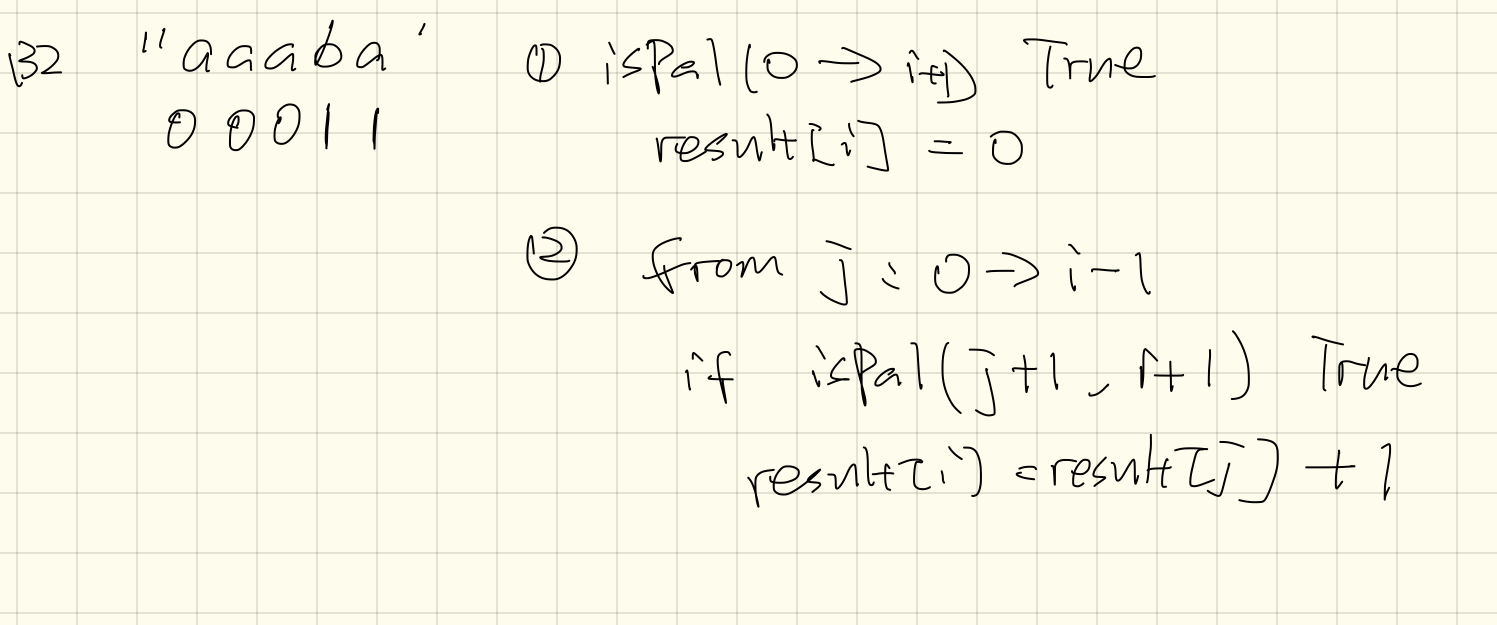 132 "aaaba'
00011
① isPal(0→i+1) True
result[i] = 0
② from j : 0→i-1
if isPal(j+1, i+1) True
result[i] = result[j] + 1